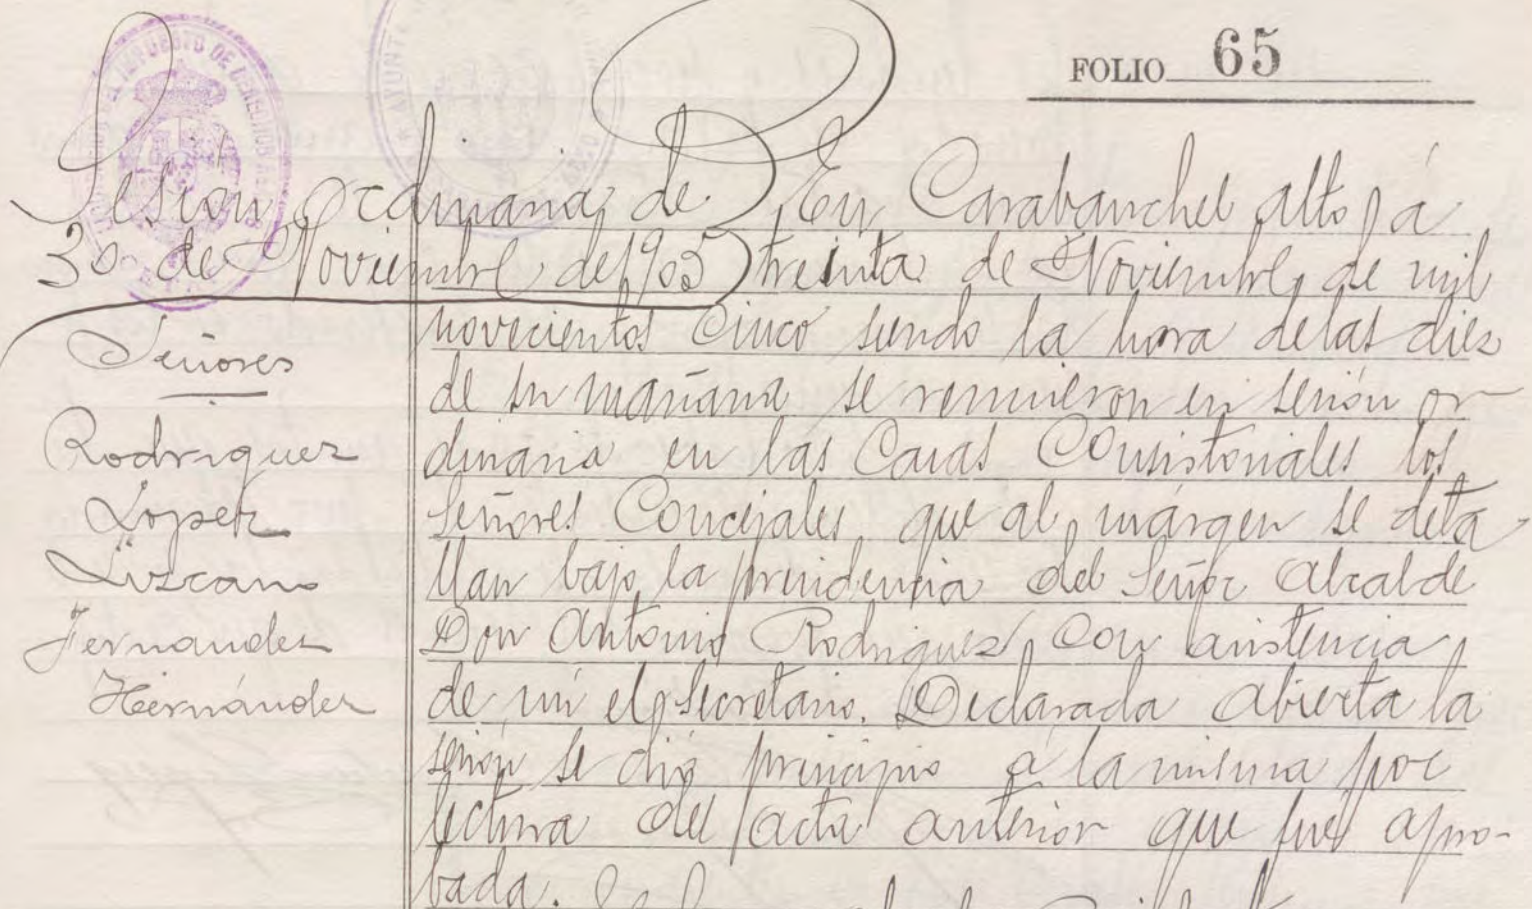 FOLIO 65
Sesion ordinaria de
30 de Noviembre de 1905
Señores
Rodriguez
Lopez
Lizcano
Fernandez
Hernández
En Carabanchel alto, á
treinta de Noviembre, de mil
novecientos Cinco siendo la hora de las diez
de su mañana se reunieron en sesión or
dinaria en las Casas Consistoriales los
Señores Concejales, que al márgen se deta
llan bajo la presidencia del Señor Alcalde
Don Antonio Rodriguez, con asistencia,
de mi el Secretario. Declarada abierta la
sesión se dió principio á la misma por
lectura del acta anterior que fué apro-
bada.